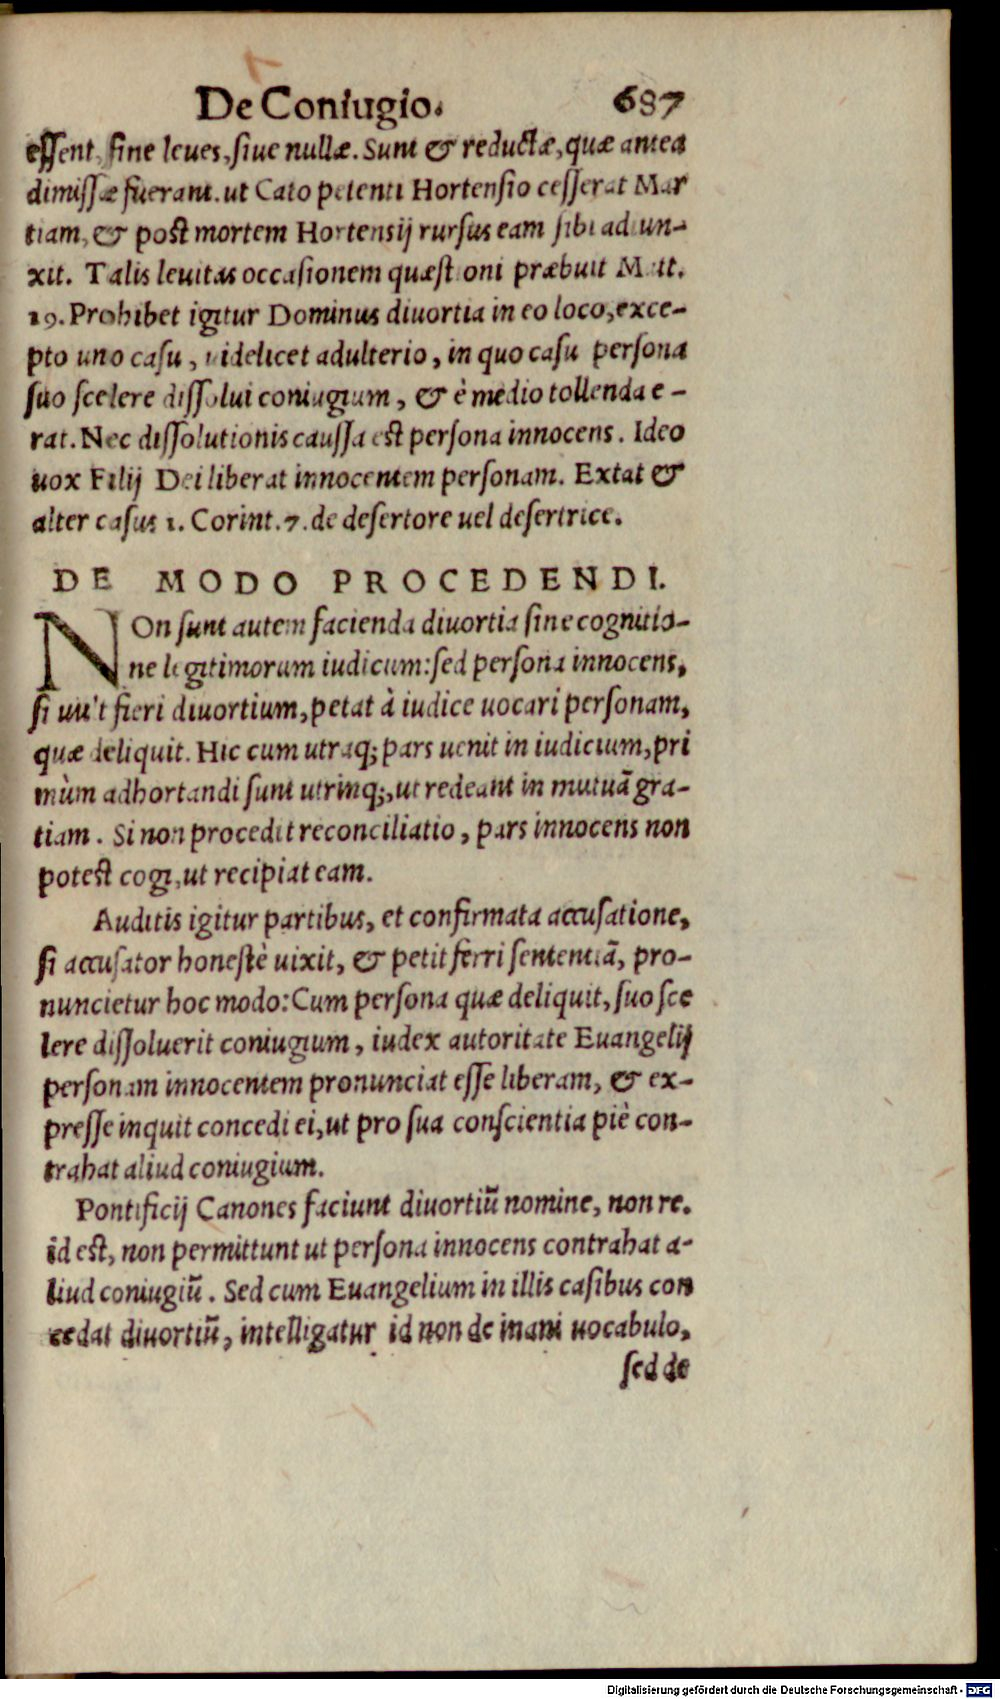 De Coniugio. 687
essent, siue leues, siue nullæ. Sunt & reductæ, quæ antea
dimissæ fuerant. ut Cato petenti Hortensio cesserat Mar
tiam, & post mortem Hortensij rursus eam sibi adiun-
xit. Talis leuitas occasionem quæstioni præbuit Matt.
19. Prohibet igitur Dominus diuortia in eo loco, exce-
pto uno casu, uidelicet adulterio, in quo casu persona
suo scelere dissolui coniugium, & è medio tollenda e-
rat. Nec dissolutionis caussa est persona innocens. Ideo
uox Filij Dei liberat innocentem personam. Extat &
alter casus 1. Corint. 7. de desertore uel desertrice.
DE MODO PROCEDENDI.
NOn sunt autem facienda diuortia sine cognitio-
ne legitimorum iudicum: sed persona innocens,
si uult fieri diuortium, petat à iudice uocari personam,
quæ deliquit. Hic cum utraq; pars uenit in iudicium, pri
mùm adhortandi sunt utrinq;, ut redeant in mutuã gra-
tiam. Si non procedit reconciliatio, pars innocens non
potest cogi, ut recipiat eam.
Auditis igitur partibus, et confirmata accusatione,
si accusator honestè uixit, & petit ferri sententiã, pro-
nuncietur hoc modo: Cum persona quæ deliquit, suo sce
lere dissoluerit coniugium, iudex autoritate Euangelij
personam innocentem pronunciat esse liberam, & ex-
presse inquit concedi ei, ut pro sua conscientia piè con-
trahat aliud coniugium.
Pontificij Canones faciunt diuortiũ nomine, non re.
id est, non permittunt ut persona innocens contrahat a-
liud coniugiũ. Sed cum Euangelium in illis casibus con
cedat diuortiũ, intelligatur id non de inani uocabulo,
sed de
Digitalisierung gefördert durch die Deutsche Forschungsgemeinschaft - DFG